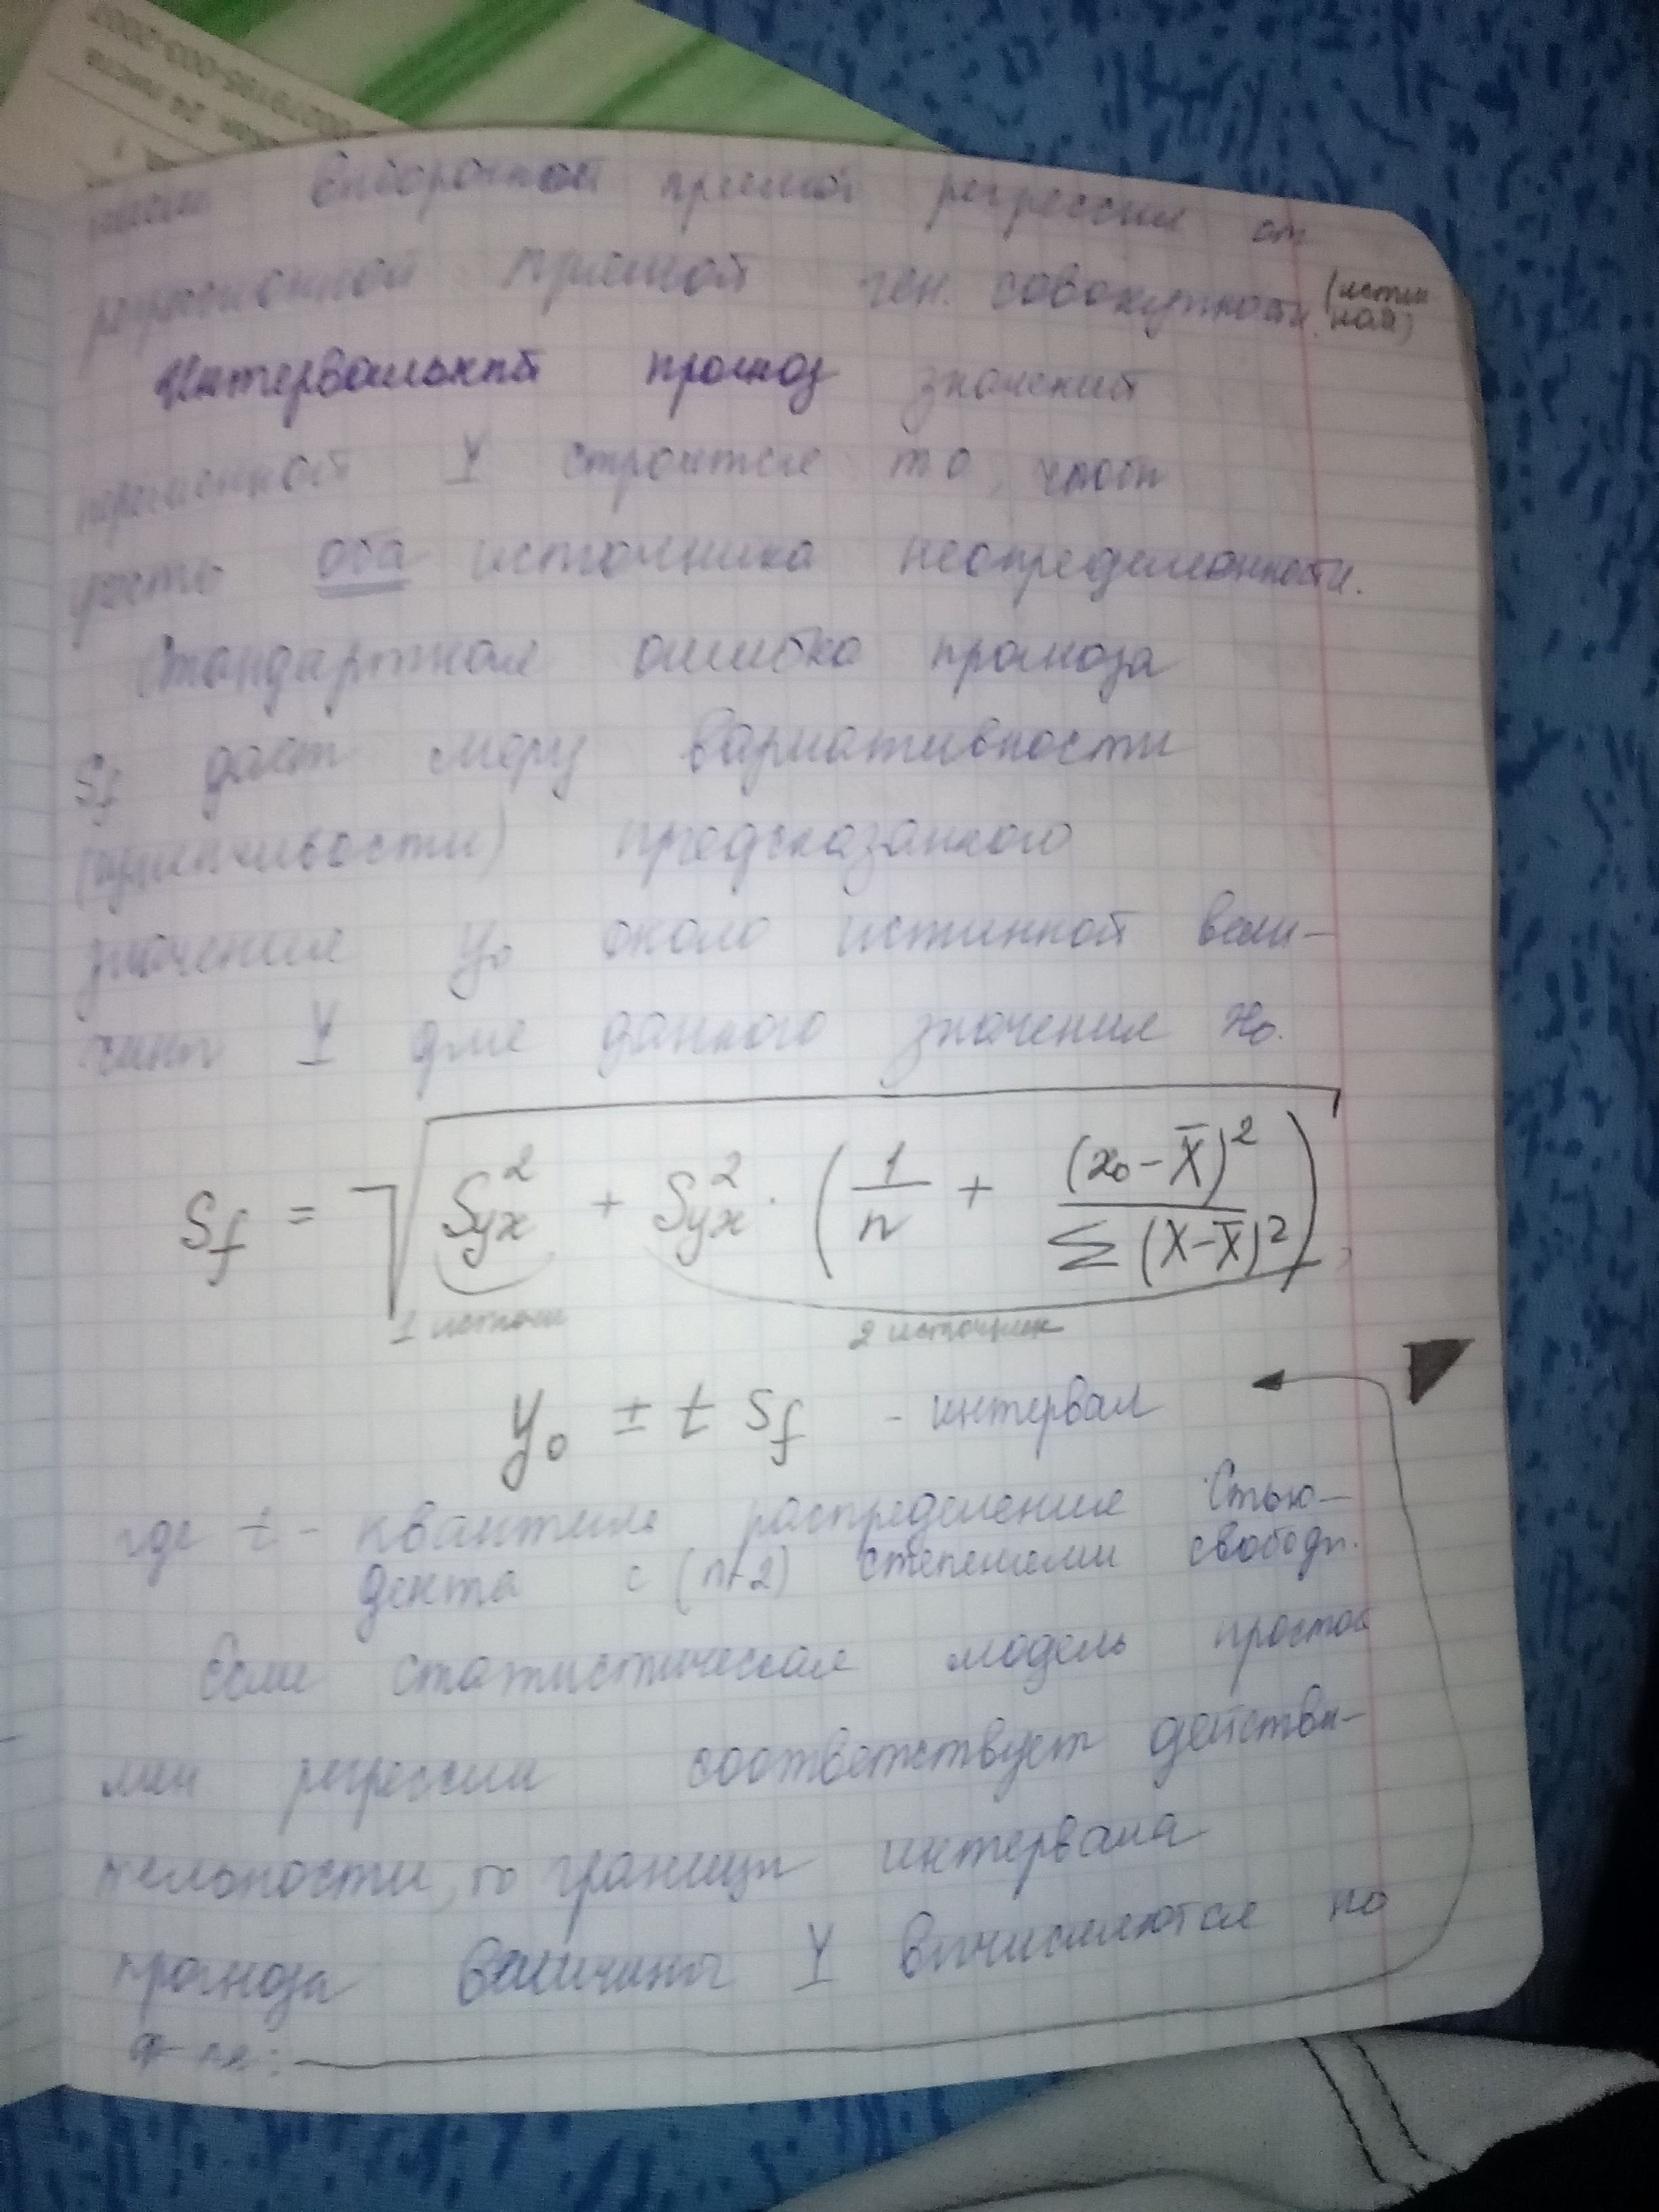 24 листа
выборочной прямой регрессии от
регрессионной прямой ген. совокупности (истин
ной)
Интервальный прогноз значений
переменной Y строится то, чтобы
учесть оба источника неопределенности.
Стандартная ошибка прогноза
Sf дает меру вариативности
(изменчивости) предсказанного
значения y₀ около истинной вели-
чины Y для данного значения x₀.
Sf = √(Syx² + Syx² · (1/n + (x₀ - X̅)²/∑(X-X̅)²)),
1 источн 2 источник
y₀ ± t Sf - интервал
где t - квантиль распределения Стью-
дента с (n-2) степенями свободы.
Если статистическая модель простой
лин регрессии соответствует действи-
тельности, то границы интервала
прогноза величины Y вычисляются по
ф-ле: